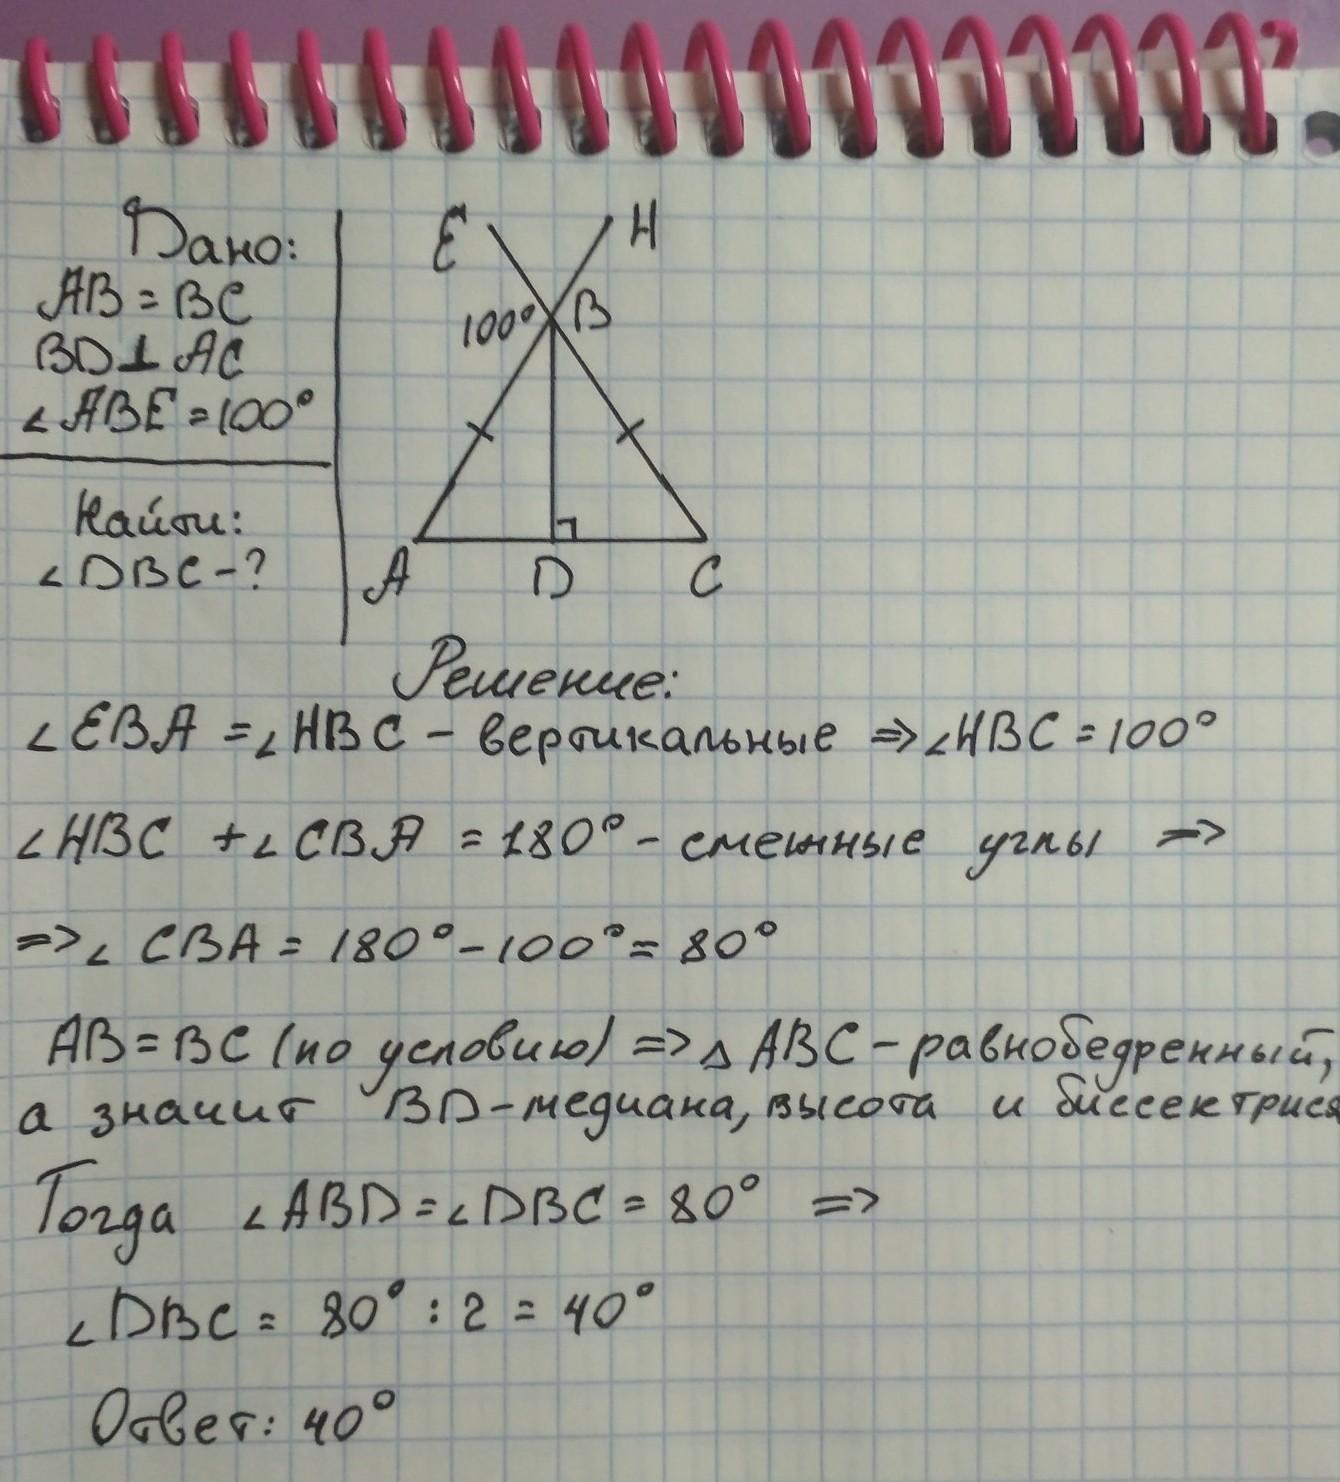 Дано:
AB = BC
BD ⊥ AC
∠ABE = 100°
Найти:
∠DBC - ?
E
H
100°
B
A
D
C
Решение:
∠EBA = ∠HBC - вертикальные => ∠HBC = 100°
∠HBC + ∠CBA = 180° - смежные углы =>
=> ∠CBA = 180° - 100° = 80°
AB = BC (по условию) => △ABC - равнобедренный,
а значит BD - медиана, высота и биссектриса
Тогда ∠ABD = ∠DBC = 80° =>
∠DBC = 80° : 2 = 40°
Ответ: 40°